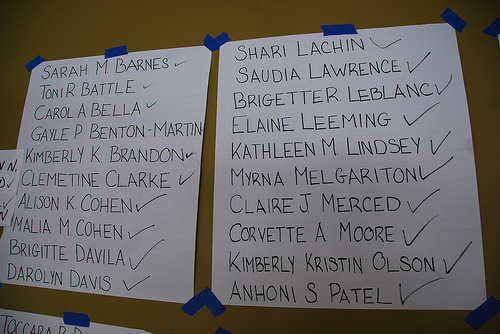 SARAH M BARNES ✓
TONI R BATTLE ✓
CAROL A BELLA ✓
GAYLE P BENTON-MARTIN
KIMBERLY K BRANDON ✓
CLEMETINE CLARKE ✓
ALISON K COHEN ✓
MALIA M COHEN ✓
BRIGITTE DAVILA ✓
DAROLYN DAVIS ✓
SHARI LACHIN ✓
SAUDIA LAWRENCE ✓
BRIGETTE R LEBLANC ✓
ELAINE LEEMING ✓
KATHLEEN M LINDSEY ✓
MYRNA MELGARITON ✓
CLAIRE J MERCED ✓
CORVETTE A MOORE ✓
KIMBERLY KRISTIN OLSON ✓
ANHONI S PATEL ✓
TOCCARA